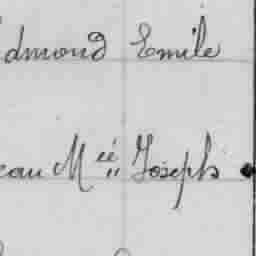 Edmond Emile
eau Mié Joseph